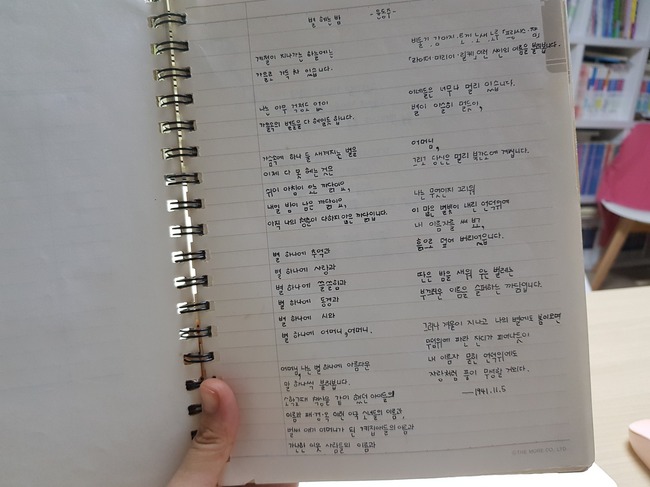 별 헤는 밤 -윤동주-
계절이 지나가는 하늘에는
가을로 가득 차 있습니다.
나는 아무 걱정도 없이
가을 속의 별들을 다 헤일 듯합니다.
가슴속에 하나 둘 새겨지는 별을
이제 다 못 헤는 것은
쉬이 아침이 오는 까닭이요,
내일 밤이 남은 까닭이요,
아직 나의 청춘이 다하지 않은 까닭입니다.
별 하나에 추억과
별 하나에 사랑과
별 하나에 쓸쓸함과
별 하나에 동경과
별 하나에 시와
별 하나에 어머니, 어머니.
어머님, 나는 별 하나에 아름다운
말 하나씩 불러봅니다.
소학교때 책상을 같이 했던 아이들의
이름과 패·경·옥 이런 이국 소녀들의 이름과,
벌써 애기 어머니가 된 계집애들의 이름과
가난한 이웃 사람들의 이름과
비둘기, 강아지, 토끼, 노새, 노루, 「프랑시스·잠」
「라이너 마리아·릴케」 이런 시인의 이름을 불러봅니다.
이네들은 너무나 멀리 있습니다.
별이 아슬히 멀듯이,
어머님,
그리고 당신은 멀리 북간도에 계십니다.
나는 무엇인지 그리워
이 많은 별빛이 내린 언덕위에
내 이름자를 써 보고,
흙으로 덮어 버리었습니다.
딴은 밤을 새워 우는 벌레는
부끄러운 이름을 슬퍼하는 까닭입니다.
그러나 겨울이 지나고 나의 별에도 봄이 오면
무덤위에 파란 잔디가 피어나듯이
내 이름자 묻힌 언덕위에도
자랑처럼 풀이 무성할 게외다.
—1941.11.5